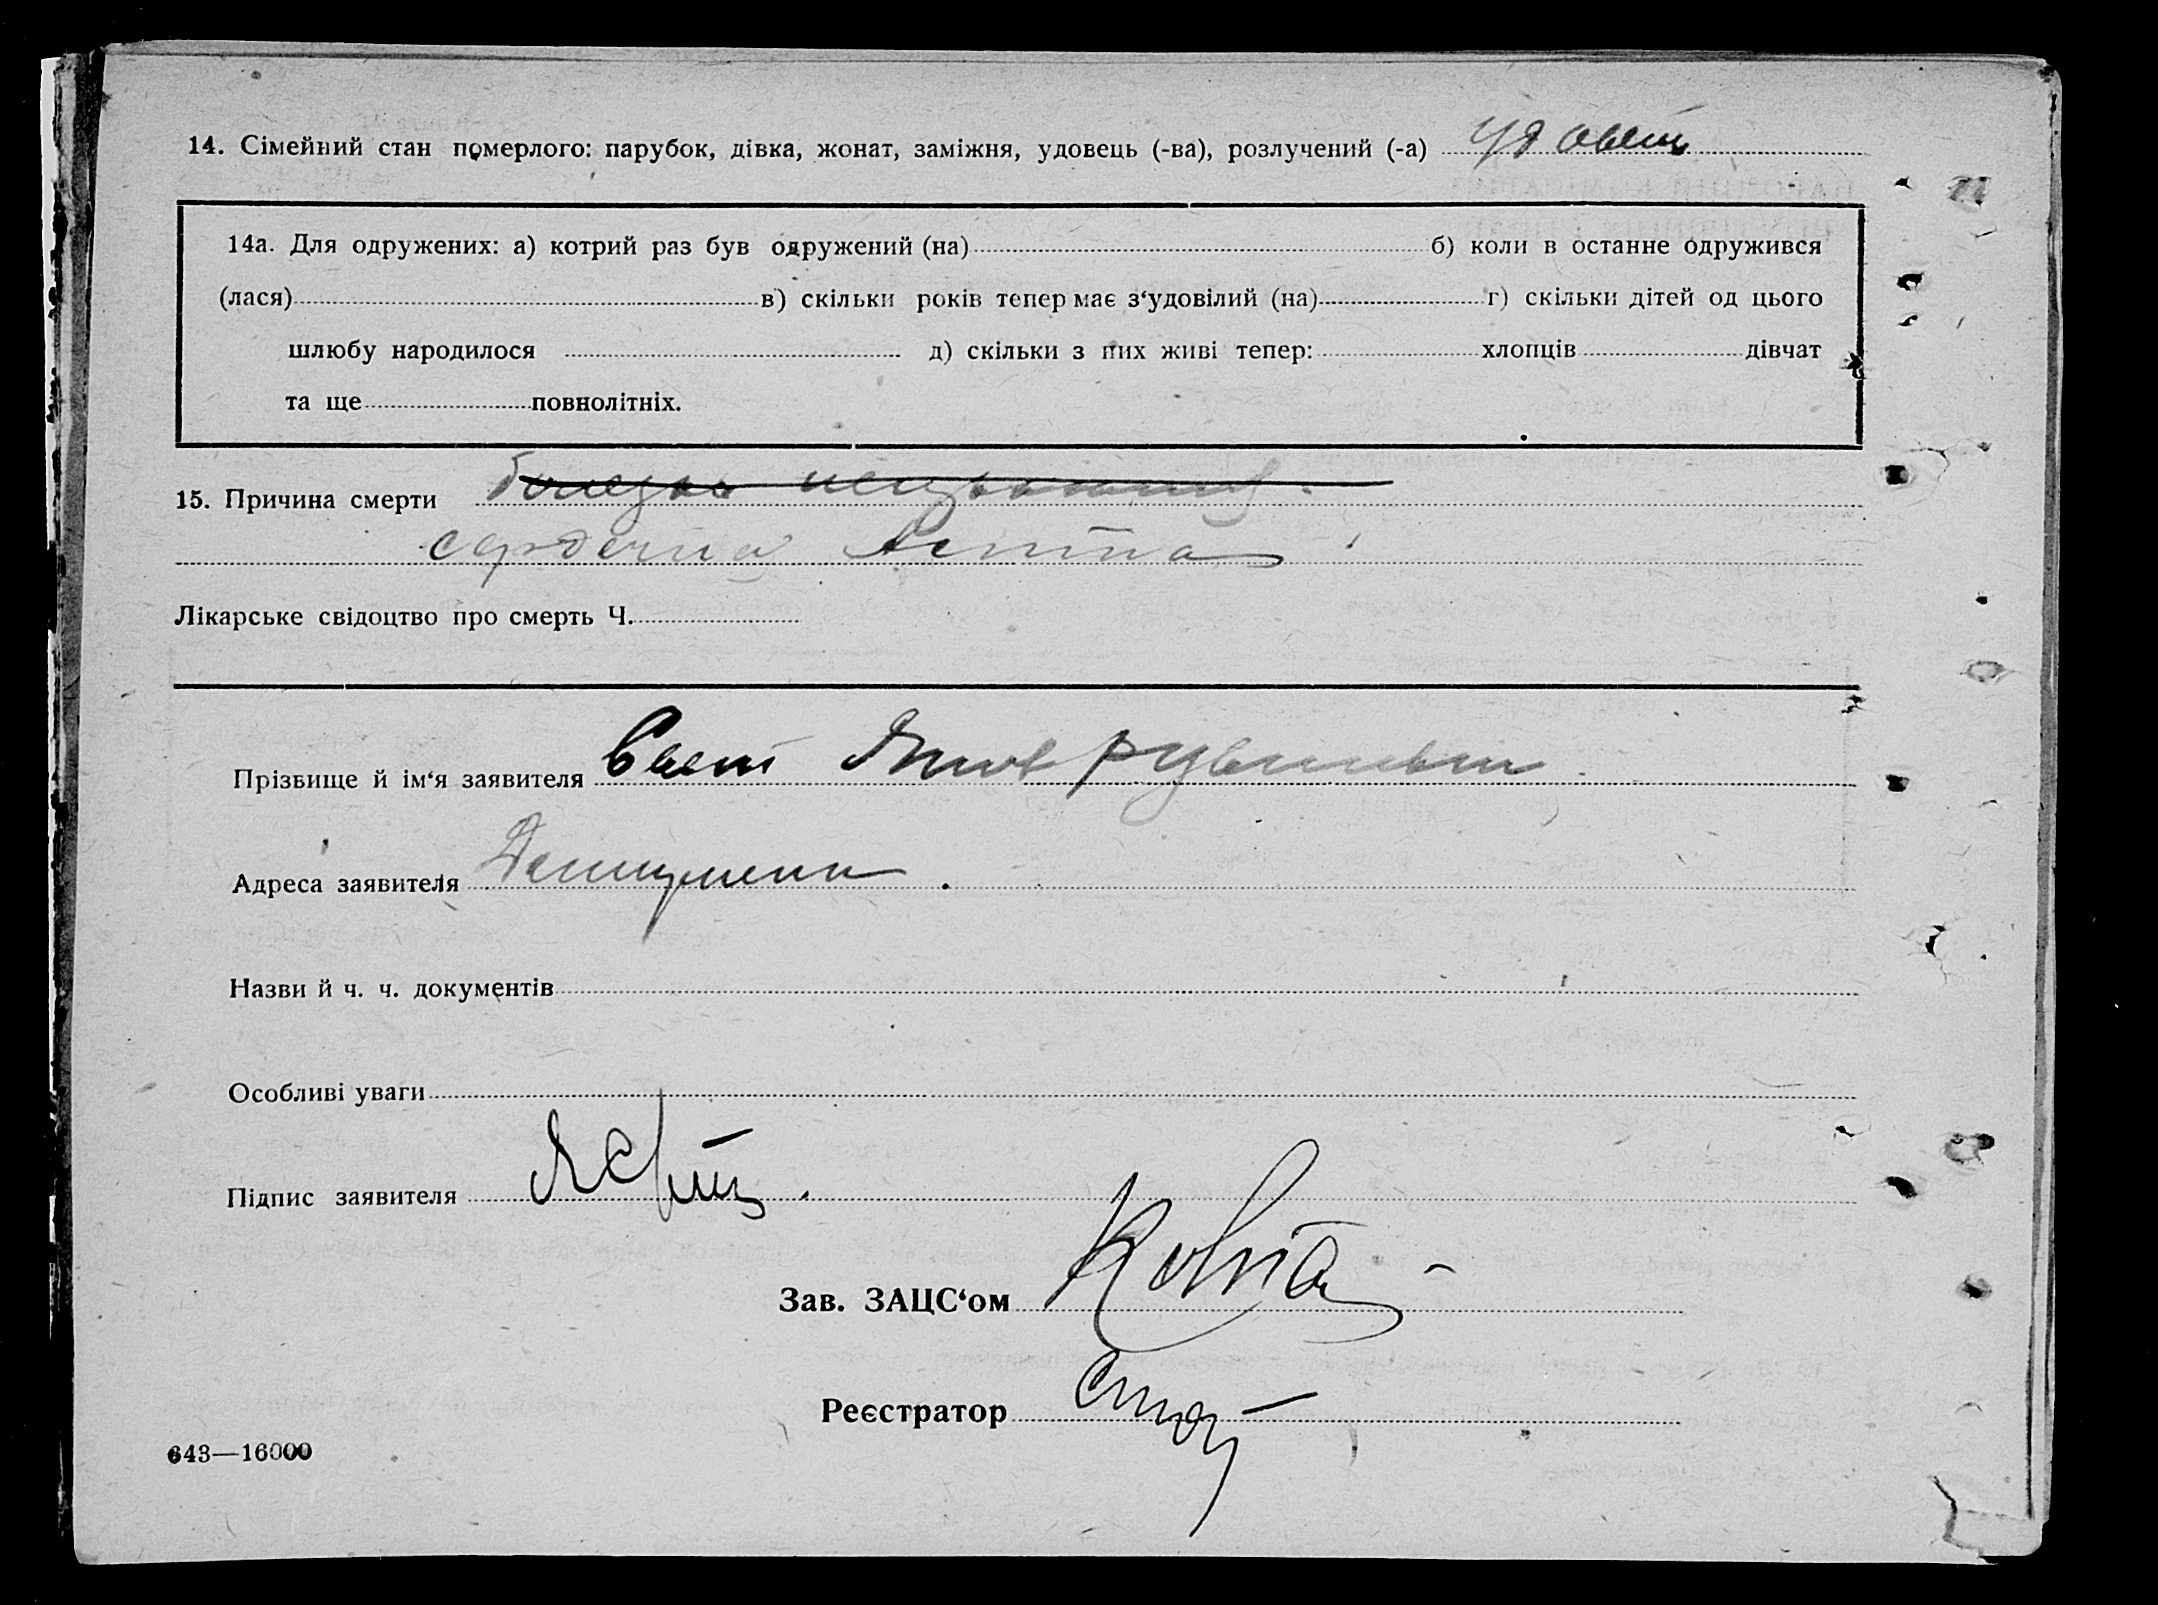 14. Сімейний стан померлого: парубок, дівка, жонат, заміжня, удовець (-ва), розлучений (-а) удовець
14а. Для одружених: а) котрий раз був одружений (на) б) коли в останнє одружився
(лася) в) скільки років тепер має з‘удовілий (на) г) скільки дітей од цього
шлюбу народилося д) скільки з них живі тепер: хлопців дівчат
та ще повнолітніх.
15. Причина смерти
сердечна
Лікарське свідоцтво про смерть Ч.
Прізвище й ім‘я заявителя
Адреса заявителя
Назви й ч. ч. документів
Особливі уваги
Підпис заявителя
Зав. ЗАЦС‘ом
Реєстратор
643—16000